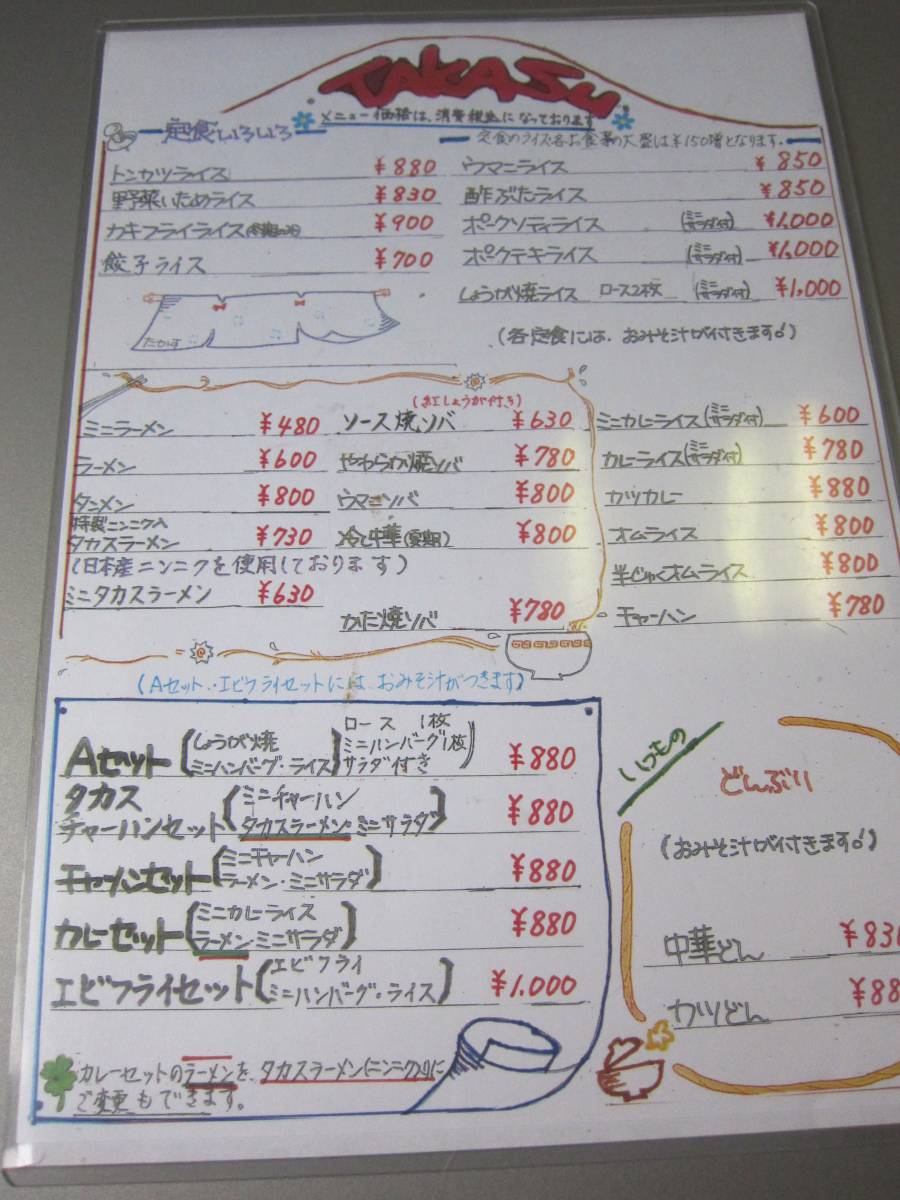 TAKASu
メニュー価格は、消費税込になっております
定食いろいろ
定食のライス・各お食事の大盛は¥150増となります。
トンカツライス ¥880
野菜いためライス ¥830
カキフライライス ¥900
餃子ライス ¥700
ウマニライス ¥850
酢ぶたライス ¥850
ポークソティライス (ミニサラダ付) ¥1,000
ポクテキライス (ミニサラダ付) ¥1,000
しょうが焼ライス ロース2枚 (ミニサラダ付) ¥1,000
(各定食には、おみそ汁が付きます♂)
たかす
ミニラーメン ¥480
ラーメン ¥600
タンメン ¥800
特製ニンニク入
タカスラーメン ¥730
(日本産ニンニクを使用しております)
ミニタカスラーメン ¥630
(紅しょうが付き)
ソース焼ソバ ¥630
やわらか焼ソバ ¥780
ウマニソバ ¥800
冷し中華(夏期) ¥800
かた焼ソバ ¥780
ミニカレーライス(ミニサラダ付) ¥600
カレーライス(ミニサラダ付) ¥780
カツカレー ¥880
オムライス ¥800
半じゅくオムライス ¥800
チャーハン ¥780
(Aセット・エビフライセットには おみそ汁がつきます)
Aセット(しょうが焼 ミニハンバーグ・ライス) ロース 1枚 ミニハンバーグ1枚 サラダ付き ¥880
タカス
チャーハンセット(ミニチャーハン タカスラーメン・ミニサラダ) ¥880
チャーハンセット(ミニチャーハン ラーメン・ミニサラダ) ¥880
カレーセット(ミニカレーライス ラーメン・ミニサラダ) ¥880
エビフライセット(エビフライ ミニハンバーグ・ライス) ¥1,000
カレーセットのラーメンを、タカスラーメン(ニンニク入り)に
ご変更もできます。
いつもの
どんぶり
(おみそ汁が付きます♂)
中華どん ¥830
カツどん ¥88